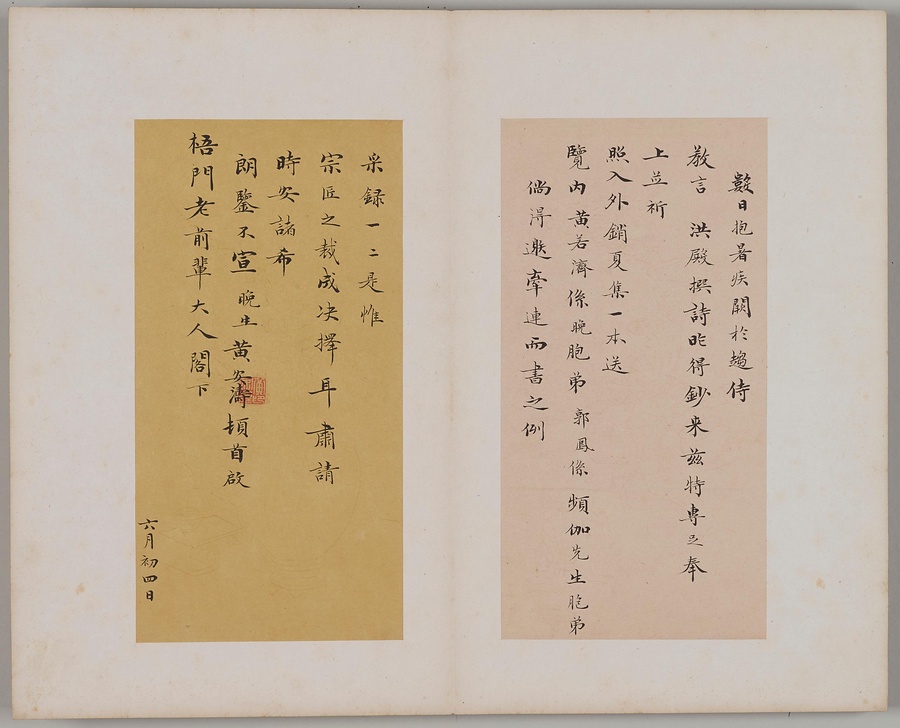 數日抱暑疾闕於趨侍
教言 洪殿撰詩昨得鈔來茲特專足奉
上並祈
照入外銷夏集一本送
覽內黃若濟係晚胞弟郭鳳係頻伽先生胞弟
倘得邀牽連而書之例
采錄一二是惟
宗匠之裁成決擇耳肅請
時安諸希
朗鑒不宣晚生黃安濤頓首啟
梧門老前輩大人閣下
六月初四日